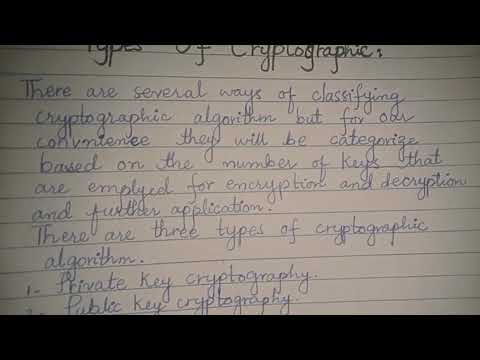 Types Of Cryptographic:
There are several ways of classifying
cryptographic algorithm but for our
convnience they will be categorize
based on the number of keys that
are emplyed for encryption and decryption
and further application.
There are three types of cryptographic
algorithm.
1- Private Key cryptography.
2- Public Key cryptography.